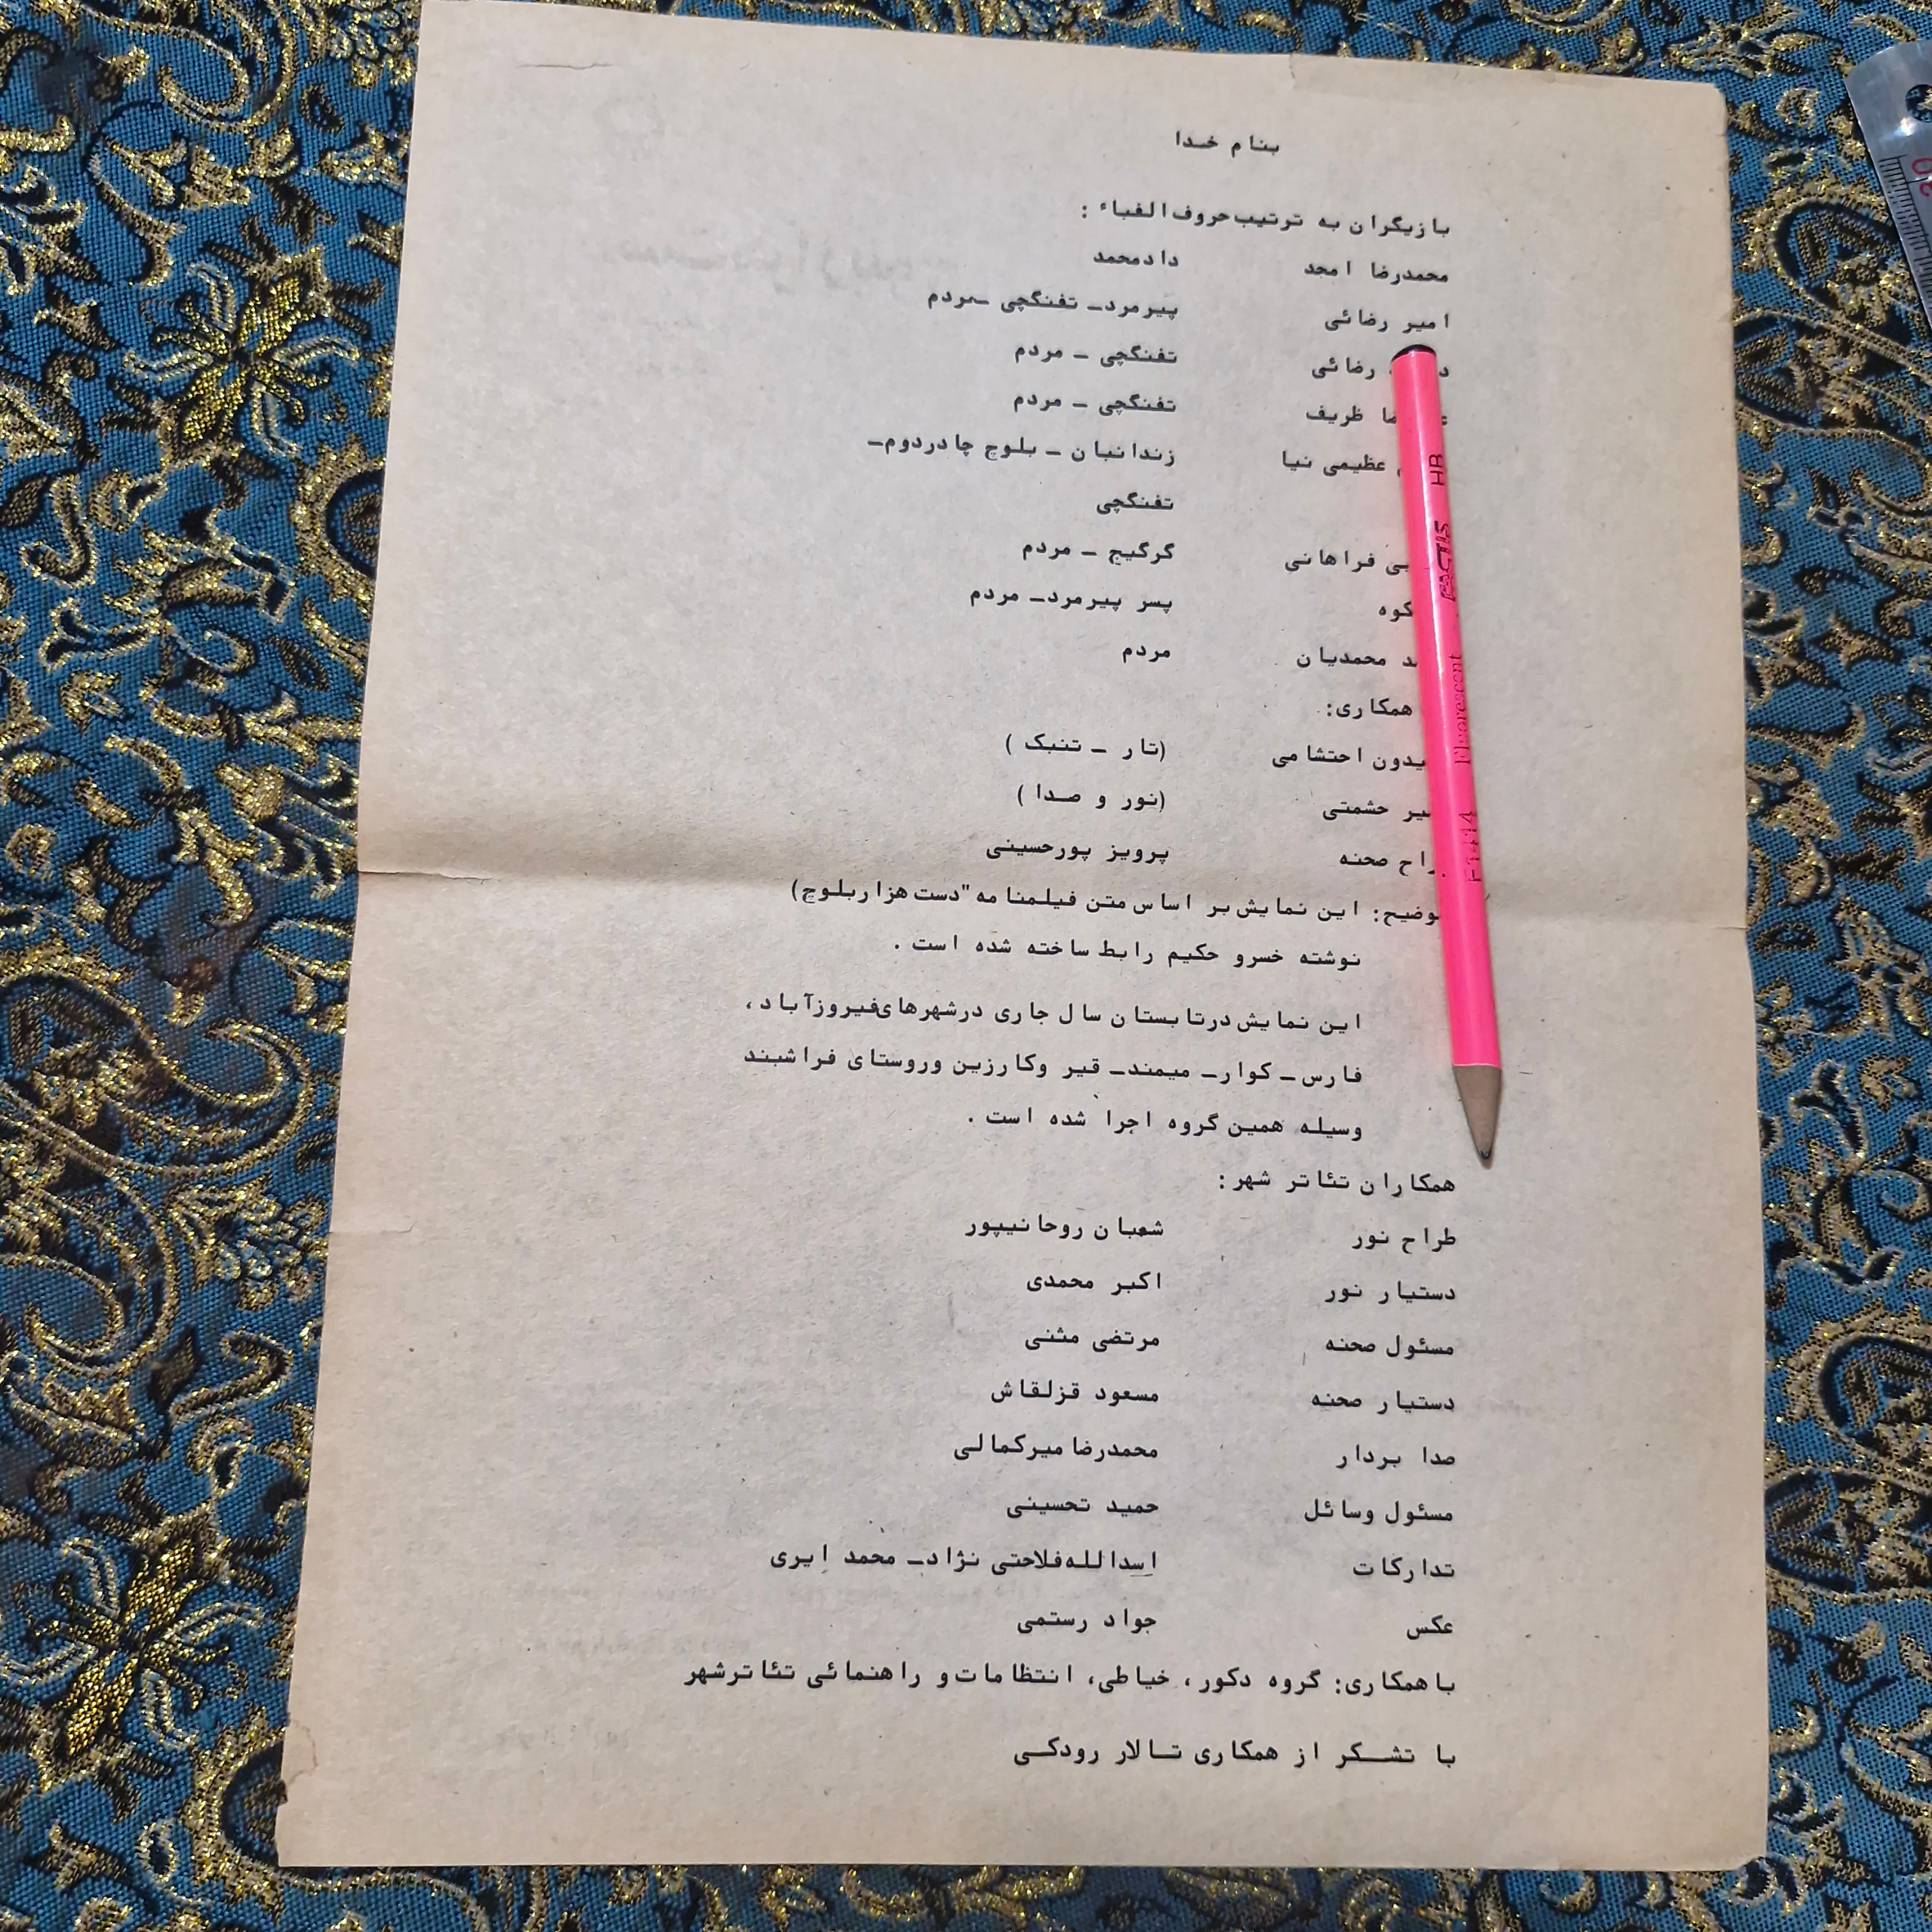 بنام خدا
بازیگران به ترتیب حروف الفباء :
محمدرضا امجد دادمحمد
امیر رضائی پیرمرد ـ تفنگچی ـ مردم
رضائی تفنگچی ـ مردم
ظریف تفنگچی ـ مردم
عظیمی نیا زندانبان ـ بلوچ چادردوم ـ
تفنگچی
فراهانی گرگیج ـ مردم
پسر پیرمرد ـ مردم
محمدیان مردم
همکاری:
احتشامی (تار ـ تنبک )
حشمتی (نور و صدا )
صحنه پرویز پورحسینی
این نمایش بر اساس متن فیلمنامه "دست هزار بلوچ)
نوشته خسرو حکیم رابط ساخته شده است .
این نمایش درتابستان سال جاری درشهرهای فیروزآباد ،
فارس ـ کوار ـ میمند ـ قیر وکارزین وروستای فراشبند
وسیله همین گروه اجرا شده است .
همکاران تئاتر شهر :
طراح نور شعبان روحانیپور
دستیار نور اکبر محمدی
مسئول صحنه مرتضی مثنی
دستیار صحنه مسعود قزلقاش
صدا بردار محمدرضا میرکمالی
مسئول وسائل حمید تحسینی
تدارکات اسدالله فلاحتی نژاد ـ محمد ایری
عکس جواد رستمی
باهمکاری: گروه دکور ، خیاطی، انتظامات و راهنمائی تئاترشهر
با تشکر از همکاری تالار رودکی
HB
FACTIS
Fluorescent